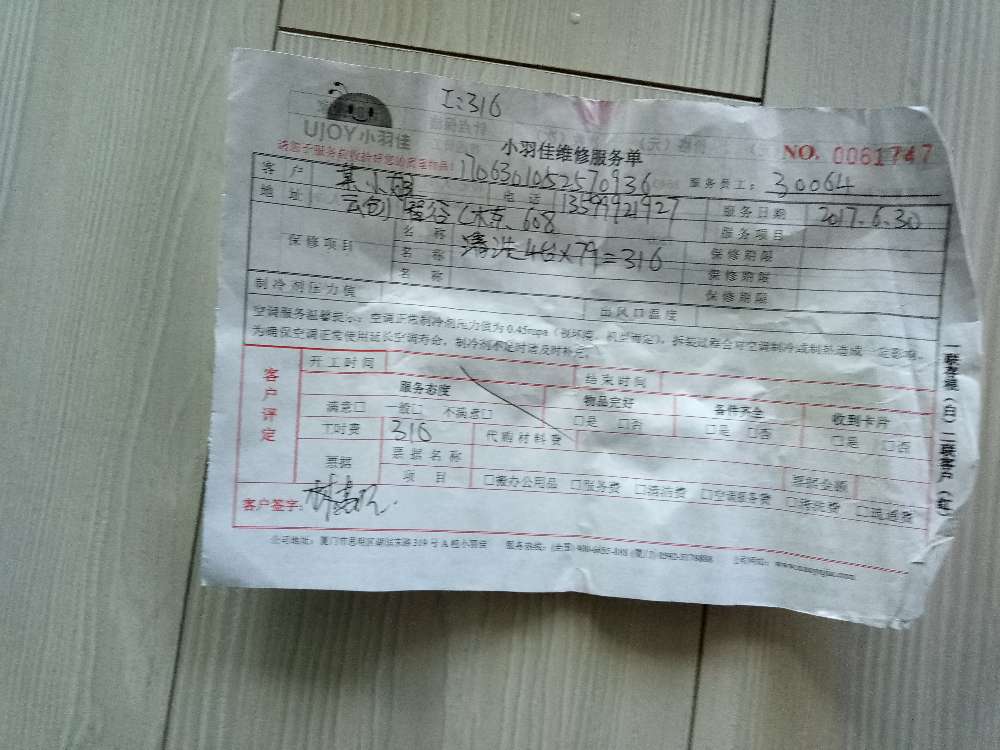 I:316
UJOY小羽佳
小羽佳维修服务单
NO. 0061747
1706301052570936 服务员工: 30064
客户 小姐 电话 13599921927 服务日期 2017.6.30
地址 608 服务项目
保修项目 名称 清洗4台×79=316 保修期限
名称 保修期限
名称 保修期限
制冷剂压力值 出风口温度
空调服务温馨提示:空调正常制冷剂压力值为0.45mpa(视环境、机型而定),拆装过程会对空调制冷或制热造成一定影响,
为确保空调正常使用延长空调寿命,制冷剂不足时请及时补充。
客户评定
开工时间 结束时间
服务态度 物品完好 备件齐全 收到卡片
满意□ 一般□ 不满意□ □是 □否 □是 □否 □是 □否
工时费 316 代购材料费
票据 票据名称 票据金额
项目 □搬办公用品 □服务费 □清洁费 □空调服务费 □清洗费 □疏通费
客户签字:
公司地址:厦门市思明区湖滨东路319号A 小羽佳 服务热线:
一联存根(白)二联客户(红)